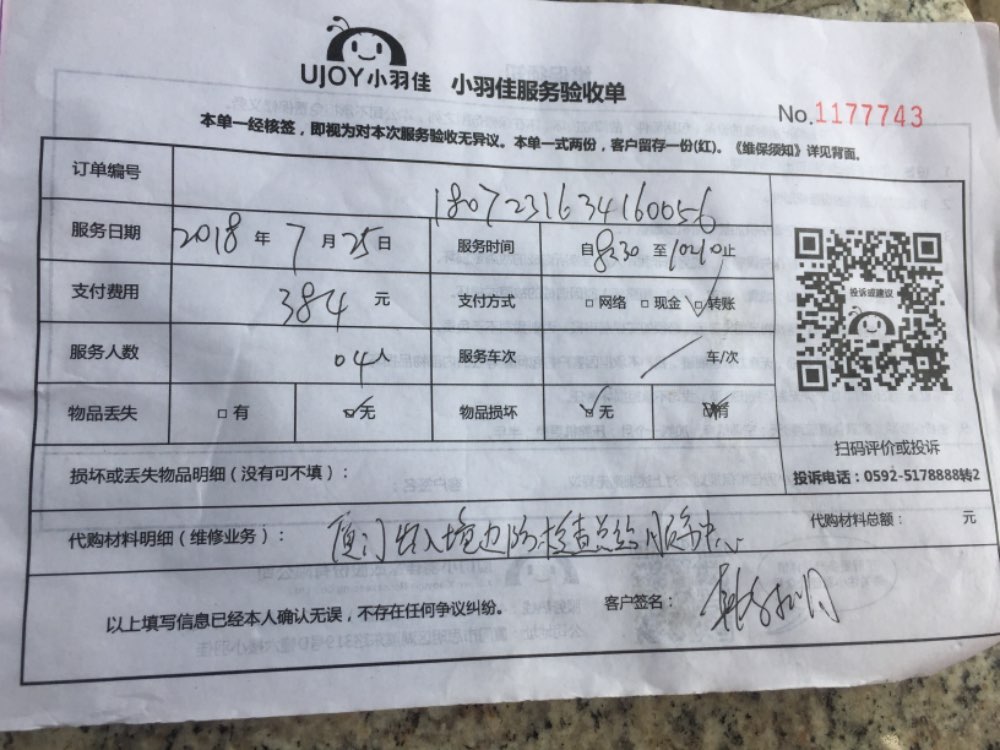 UJOY小羽佳 小羽佳服务验收单
No.1177743
本单一经核签，即视为对本次服务验收无异议。本单一式两份，客户留存一份(红)。《维保须知》详见背面。
订单编号 1807231634160056
服务日期 2018 年 7 月 25 日 服务时间 自 8:30 至 10:10 止
投诉或建议
支付费用 384 元 支付方式 □ 网络 □ 现金 □ 转账
服务人数 04人 服务车次 / 车/次
物品丢失 □ 有 ☑ 无 物品损坏 ☑ 无 □ 有
扫码评价或投诉
损坏或丢失物品明细（没有可不填）：
投诉电话：0592-5178888转2
代购材料明细（维修业务）： 厦门出入境边防检查总站服务中心
代购材料总额： 元
以上填写信息已经本人确认无误，不存在任何争议纠纷。 客户签名：